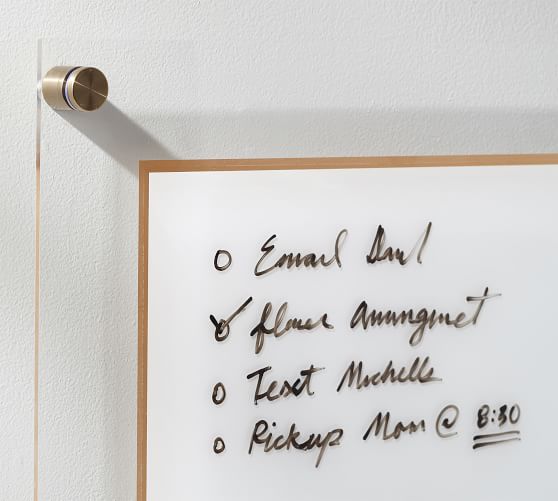 Email Dave
flower arrangmet
Text Michelle
Pickup Mom @ 8:30